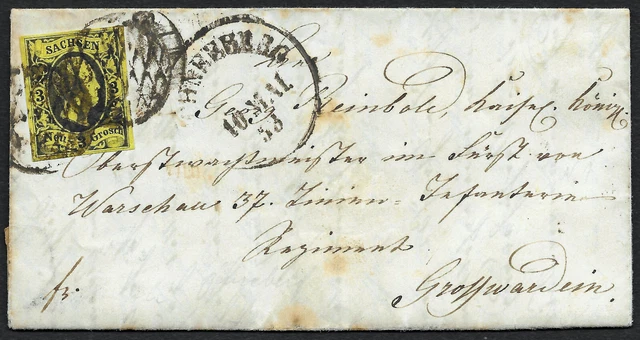 SACHSEN
3 3
Neu- 3 Grosch
SCHNEEBERG
10 MAI
53
Reinbold, kaiserl. königl.
Oberstwachtmeister im Fürst von
Warschau 37. Linien-Infanterie
Regiment
Grosswardein.
fr.